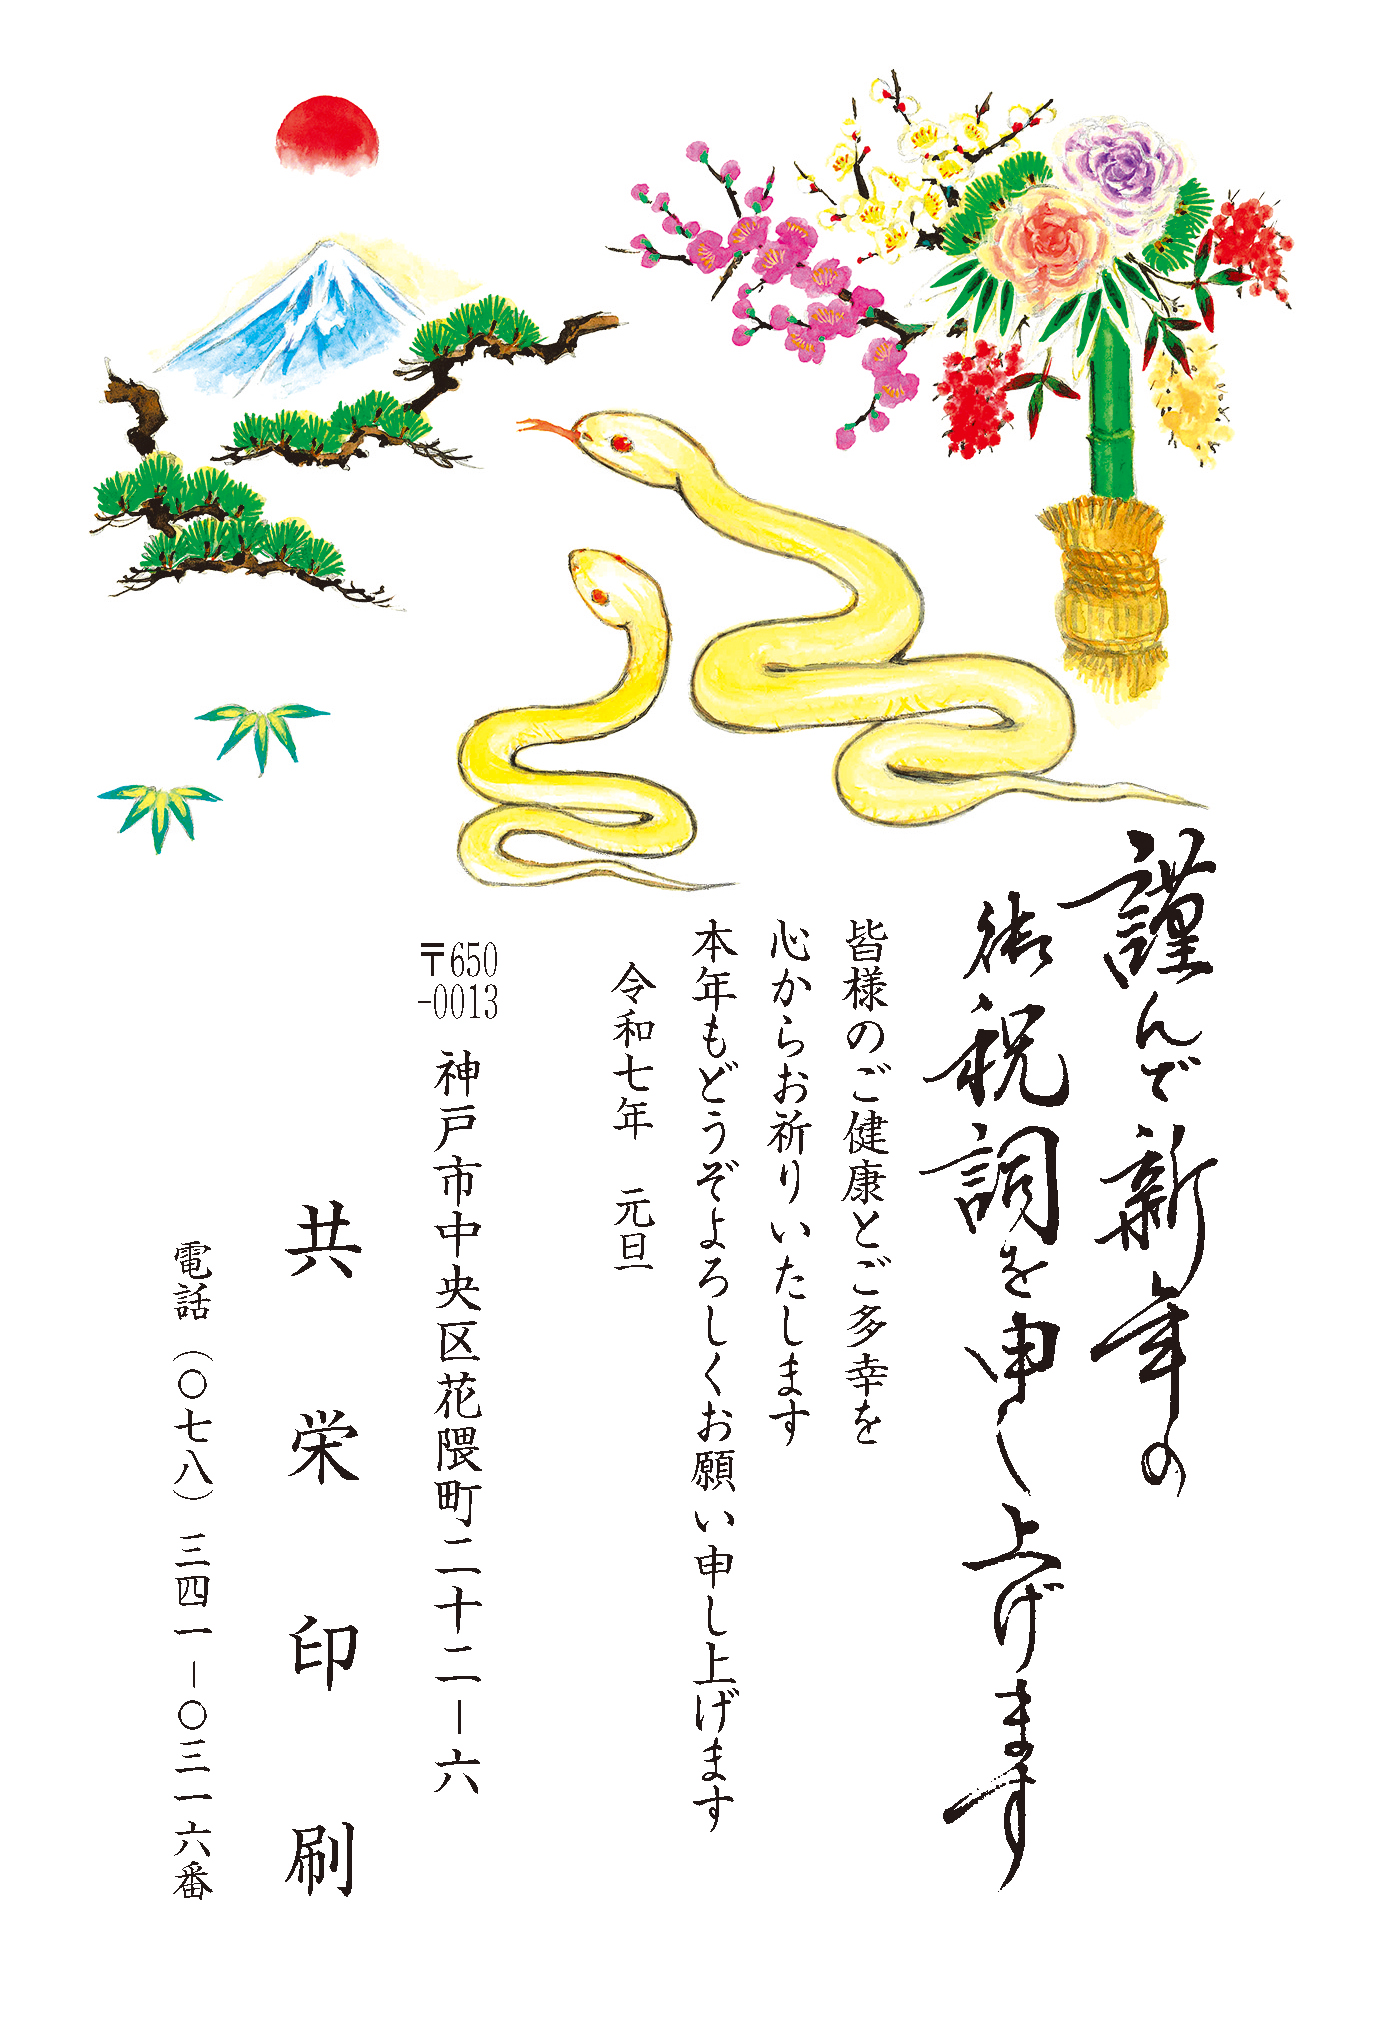 謹んで新年の
御祝詞を申し上げます
皆様のご健康とご多幸を
心からお祈りいたします
本年もどうぞよろしくお願い申し上げます
令和七年　元旦
〒650
-0013
神戸市中央区花隈町二十二－六
共栄印刷
電話（〇七八）三四一－〇三一六番